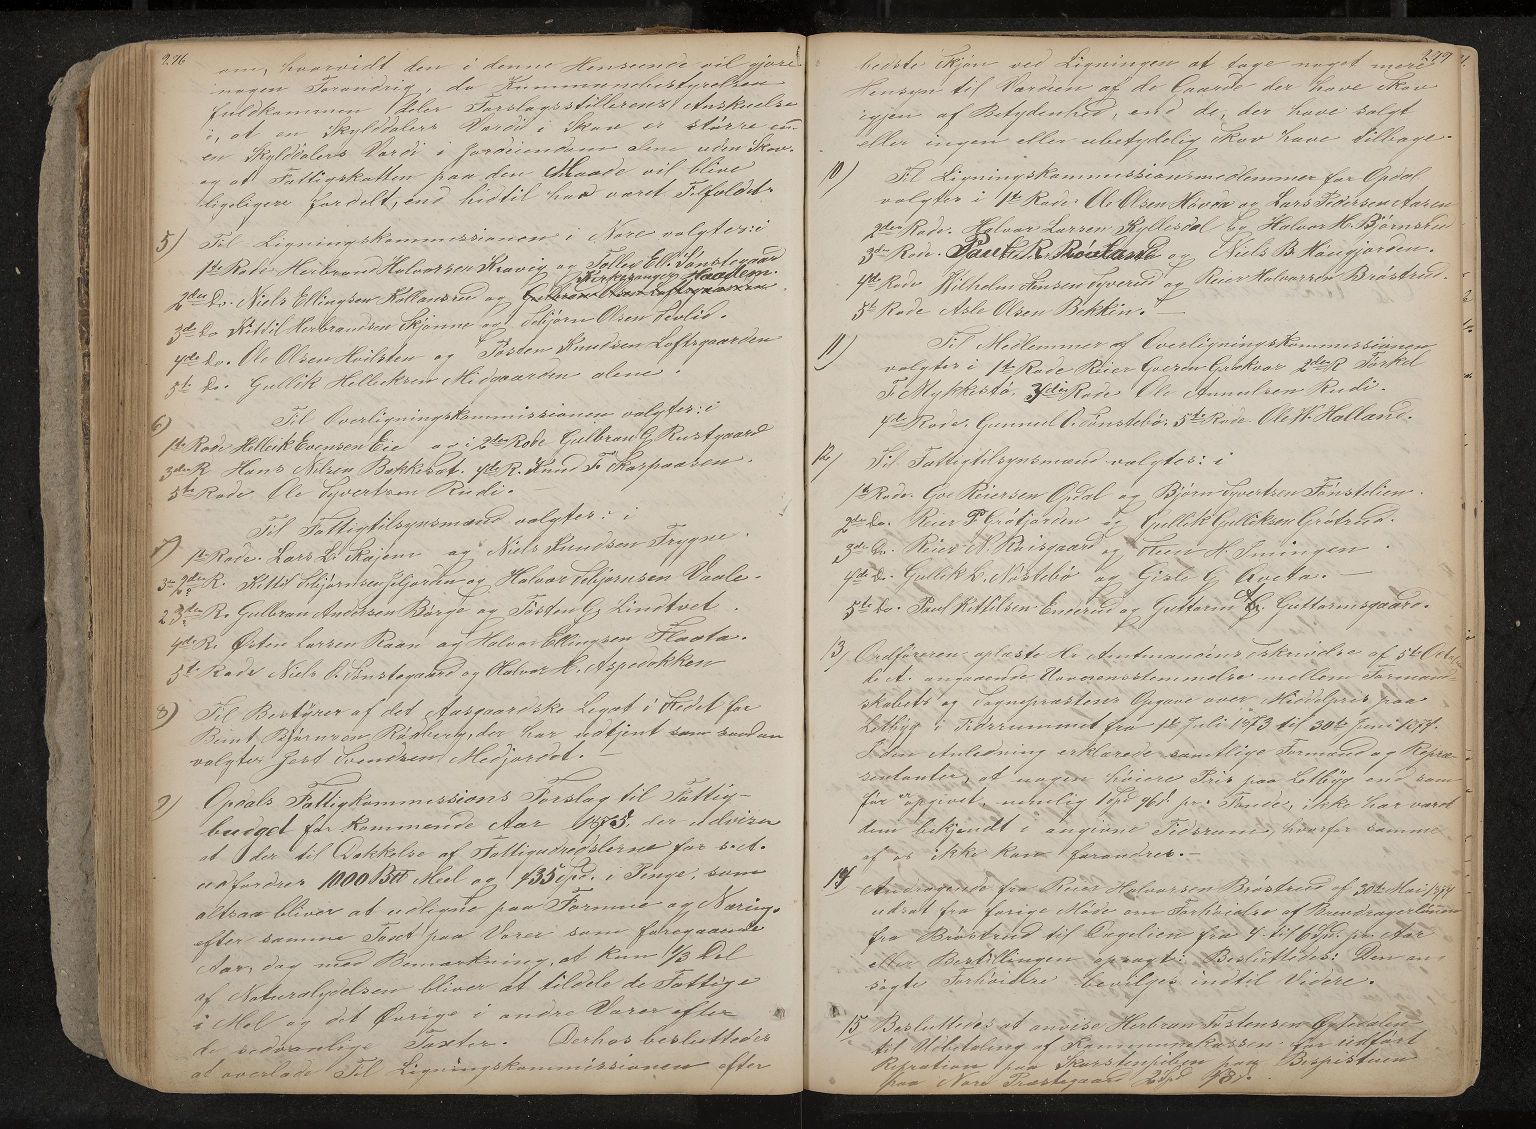 276
om, hvorvidt den i denne Henseende vil gjøre
nogen Forandrig, da Kummunebestyrelsen
fuldkommen deler Forslagsstillerens Anskuelse
i, at en Skylddalers Værdi i Skov er større end
en Skylddalers Værdi i Jordeiendom alene uden Skov.
og at Fattigskatten paa den Maade vil blive
ligeligere fordelt, end hidtil har været Tilfældet.
5) Til Ligningskommissionen i Nore valgtes: i
1ste Rode Herbrand Halvorsen Kravig og Tollev Ell. Tønstegaard
Kirkesanger Haadem.
2den Do. Niels Ellingsen Kallansrud og
3die Do Kittil Herbrandsen Skjønne og Thbjørn Olsen Tevlid.
4de Do. Ole Olsen Hvilsten og Tosten Knudsen Loftsgaarden
5te Do. Gullik Helleksen Midgaarden alene.
6) Til Overligningskommissionen valgtes: i
1ste Rode Hellik Evensen Eie og i 2den Rode Gulbran G. Rustgaard
3die R. Hans Nilsen Bakketat. 4de R. Knud T. Skarpaasen.
5te Rode Ole Syvertsen Rudi.
Til Fattigtilsynsmænd valgtes: i
7) 1ste Rode. Lars L. Skajem og Niels Knudsen Trygne.
3 2den R. Kittil Thbjørnsen Gjorden og Halvor Thbjørnsen Vaale.
2 3die R. Gulbran Andersen Borge og Tosten G. Lindtvet.
4de R. Østen Larsen Raan og Halvor Ellingsen Flaata.
5te Rode Niels O. Tønstegaard og Halvor H. Aspedokken
8) Til Bestyrer af det Aasgaardske Legat i Stedet for
Beint Bjørnsen Rødberg, der har udtjent som saadan
valgtes Gest Svendsen Medjordet.
9) Opdals Fattigkommissions Forslag til Fattig-
budget for kommende Aar 1875, der udviser
at der til Dækkelse af Fattigudredslerne for s. A.
udfordres 1000 B℔ Meel og 735 Spd. i Penge, som
altsaa bliver at udligne paa Formue og Næring.
efter samme Taxt paa Varer som foregaaende
Aar, dog med Bemærkning, at kun 1/3 Del
af Naturalydelsen bliver at tildele de Fattige
i Mel og det Øvrige i andre Varer efter
de sedvanlige Taxter. Derhos besluttedes
at overlade Til Ligningskommissionen efter
277
bedste Skjøn ved Ligningen at tage noget mere
Hensyn til Værdien af de Gaarde der have Skov
igjen af Betydenhed, end de, der have solgt
eller ingen eller ubetydelig Skov have tilbage.
10) Til Ligningskommissionsmedlemmer for Opdal
valgtes i 1ste Rode. Ole Olsen Hovda og Lars Pedersen Aasen
2den Rode. Halvor Larsen Kyllesdal og Halvor H. Bjørnsbu
3die Rode. Paul R. Røiland og Niels B. Haugjorden.
4de Rode Vilhelm Jensen Syverud og Reier Halvorsen Brøstrud.
5te Rode Asle Olsen Bekkin.
11) Til Medlemmer af Overligningskommissionen
valgtes i 1ste Rode Reier Goesen Grøkvar 2den R Torkel
T. Mykkestø, 3die Rode Ole Amundsen Rudi.
4de Rode. Gunnul O. Tønstebø, 5te Rode. Ole K. Halland.
12) Til Fattigtilsynsmænd valgtes: i
1ste Rode. Goe Reiersen Opdal og Bjørn Syvertsen Tønstelien.
2den Do. Reier P. Grøtjorden og Gullik Gulliksen Grøtrud.
3die Do. Reier N. Raisgaard og Steen H. Imingen.
4de Do. Gullik L. Nøstebø og Gisle G. Aveta.
5te Do. Paul Kittilsen Enerud og Guttorm G. Guttormsgaard.
13) Ordføreren oplæste Hr Amtmandens Skrivelse af 5te October
d. A. angaaende Uoverensstemmelse mellem Formand-
skabets og Sognepræstens Opgave over Middelpris paa
Letbyg i Tidsrummet fra 1ste Juli 1873 til 30te Juni 1874.
I den Anledning erklærede samtlige Formænd og Repræ-
sentanter, at nogen høiere Pris paa Letbyg end som
før er opgivet, nemlig 1 Spd 96 s. pr. Tønde, ikke har været
dem bekjendt i angivne Tidsrum, hvorfor samme
af os ikke kan forandres.
14) Andragende fra Reier Halvorsen Brøstrud af 30te Mai 1874
udsat fra forige Møde om Forhøielse af Bumdragerlønnen
fra Brøstrud til Dagelien fra 4 til 6 Spd. pr. Aar
eller Bestillingen opsagt: Besluttedes: Den om
søgte Forhøielse bevilges indtil Videre.
15 Besluttedes at anvise Herbran Tostensen Ogtedalen
til Udbetaling af Kommunekassen for udført
Repration paa Skorstenspiben paa Bespisteuen
paa Nore Præstegaard 2 Spd 48 s.